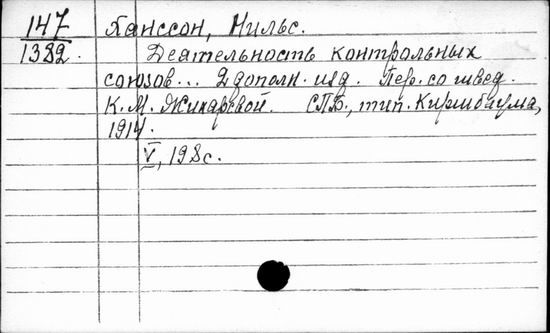 147 Ханссон, Нильс.
1382. Деятельность контрольных
союзов... 2 дополн. изд. Пер. со швед.
К. М. Жихаревой. СПБ., тип. Киршбаума,
1914.
V, 198 с.